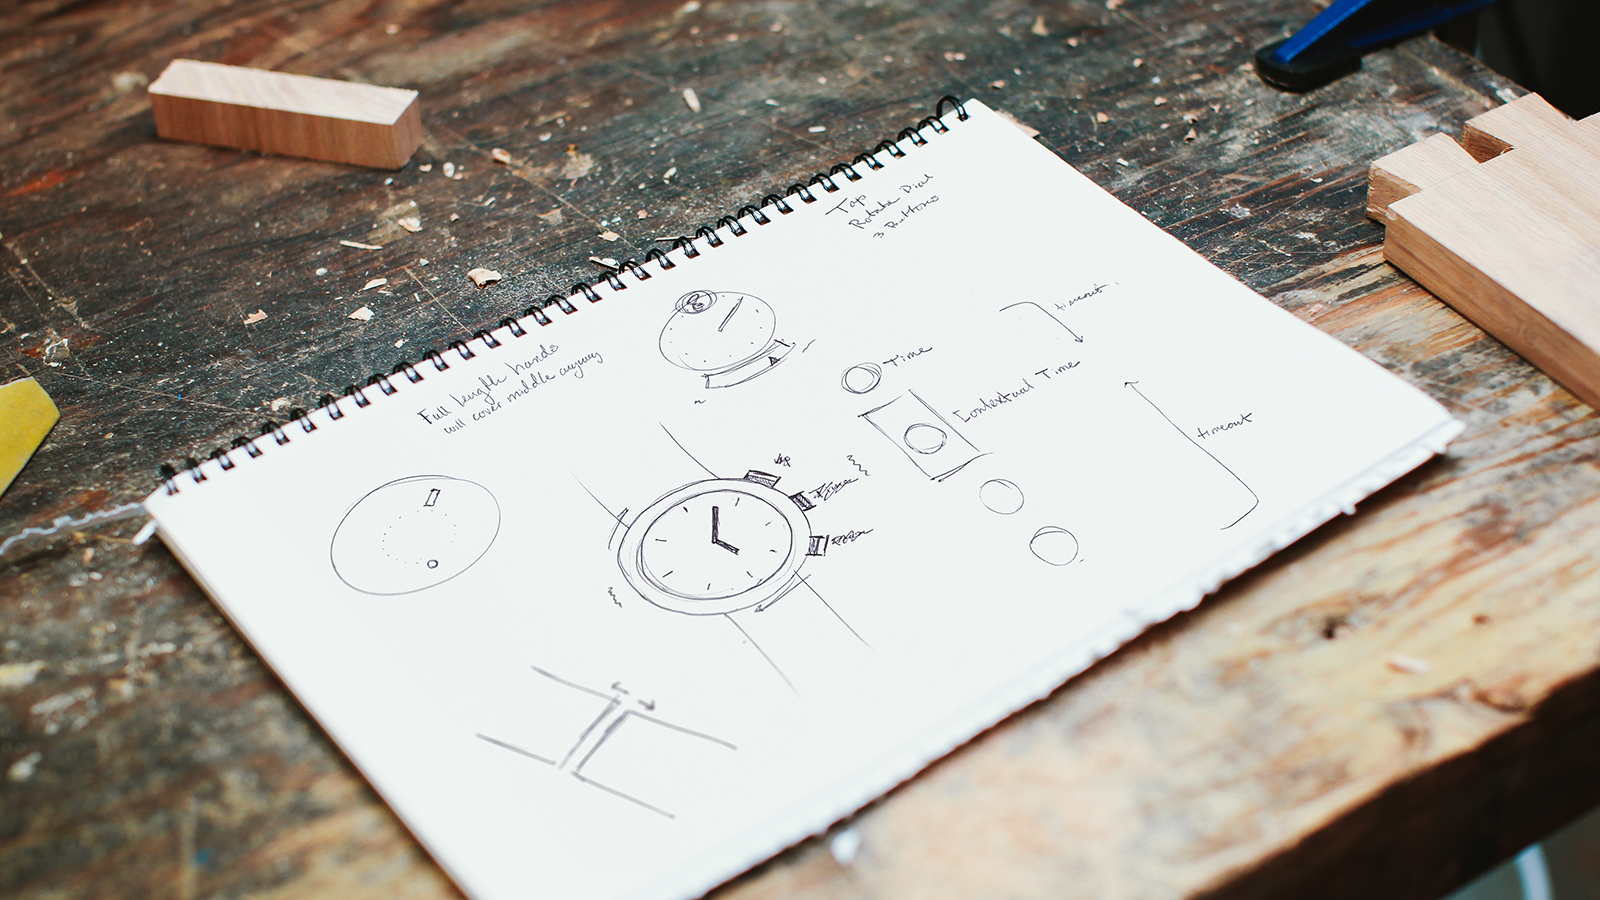 Tap
Rotate Dial
3 Buttons
Full length hands
will cover middle anyway
8
timeout
Time
Contextual Time
timeout